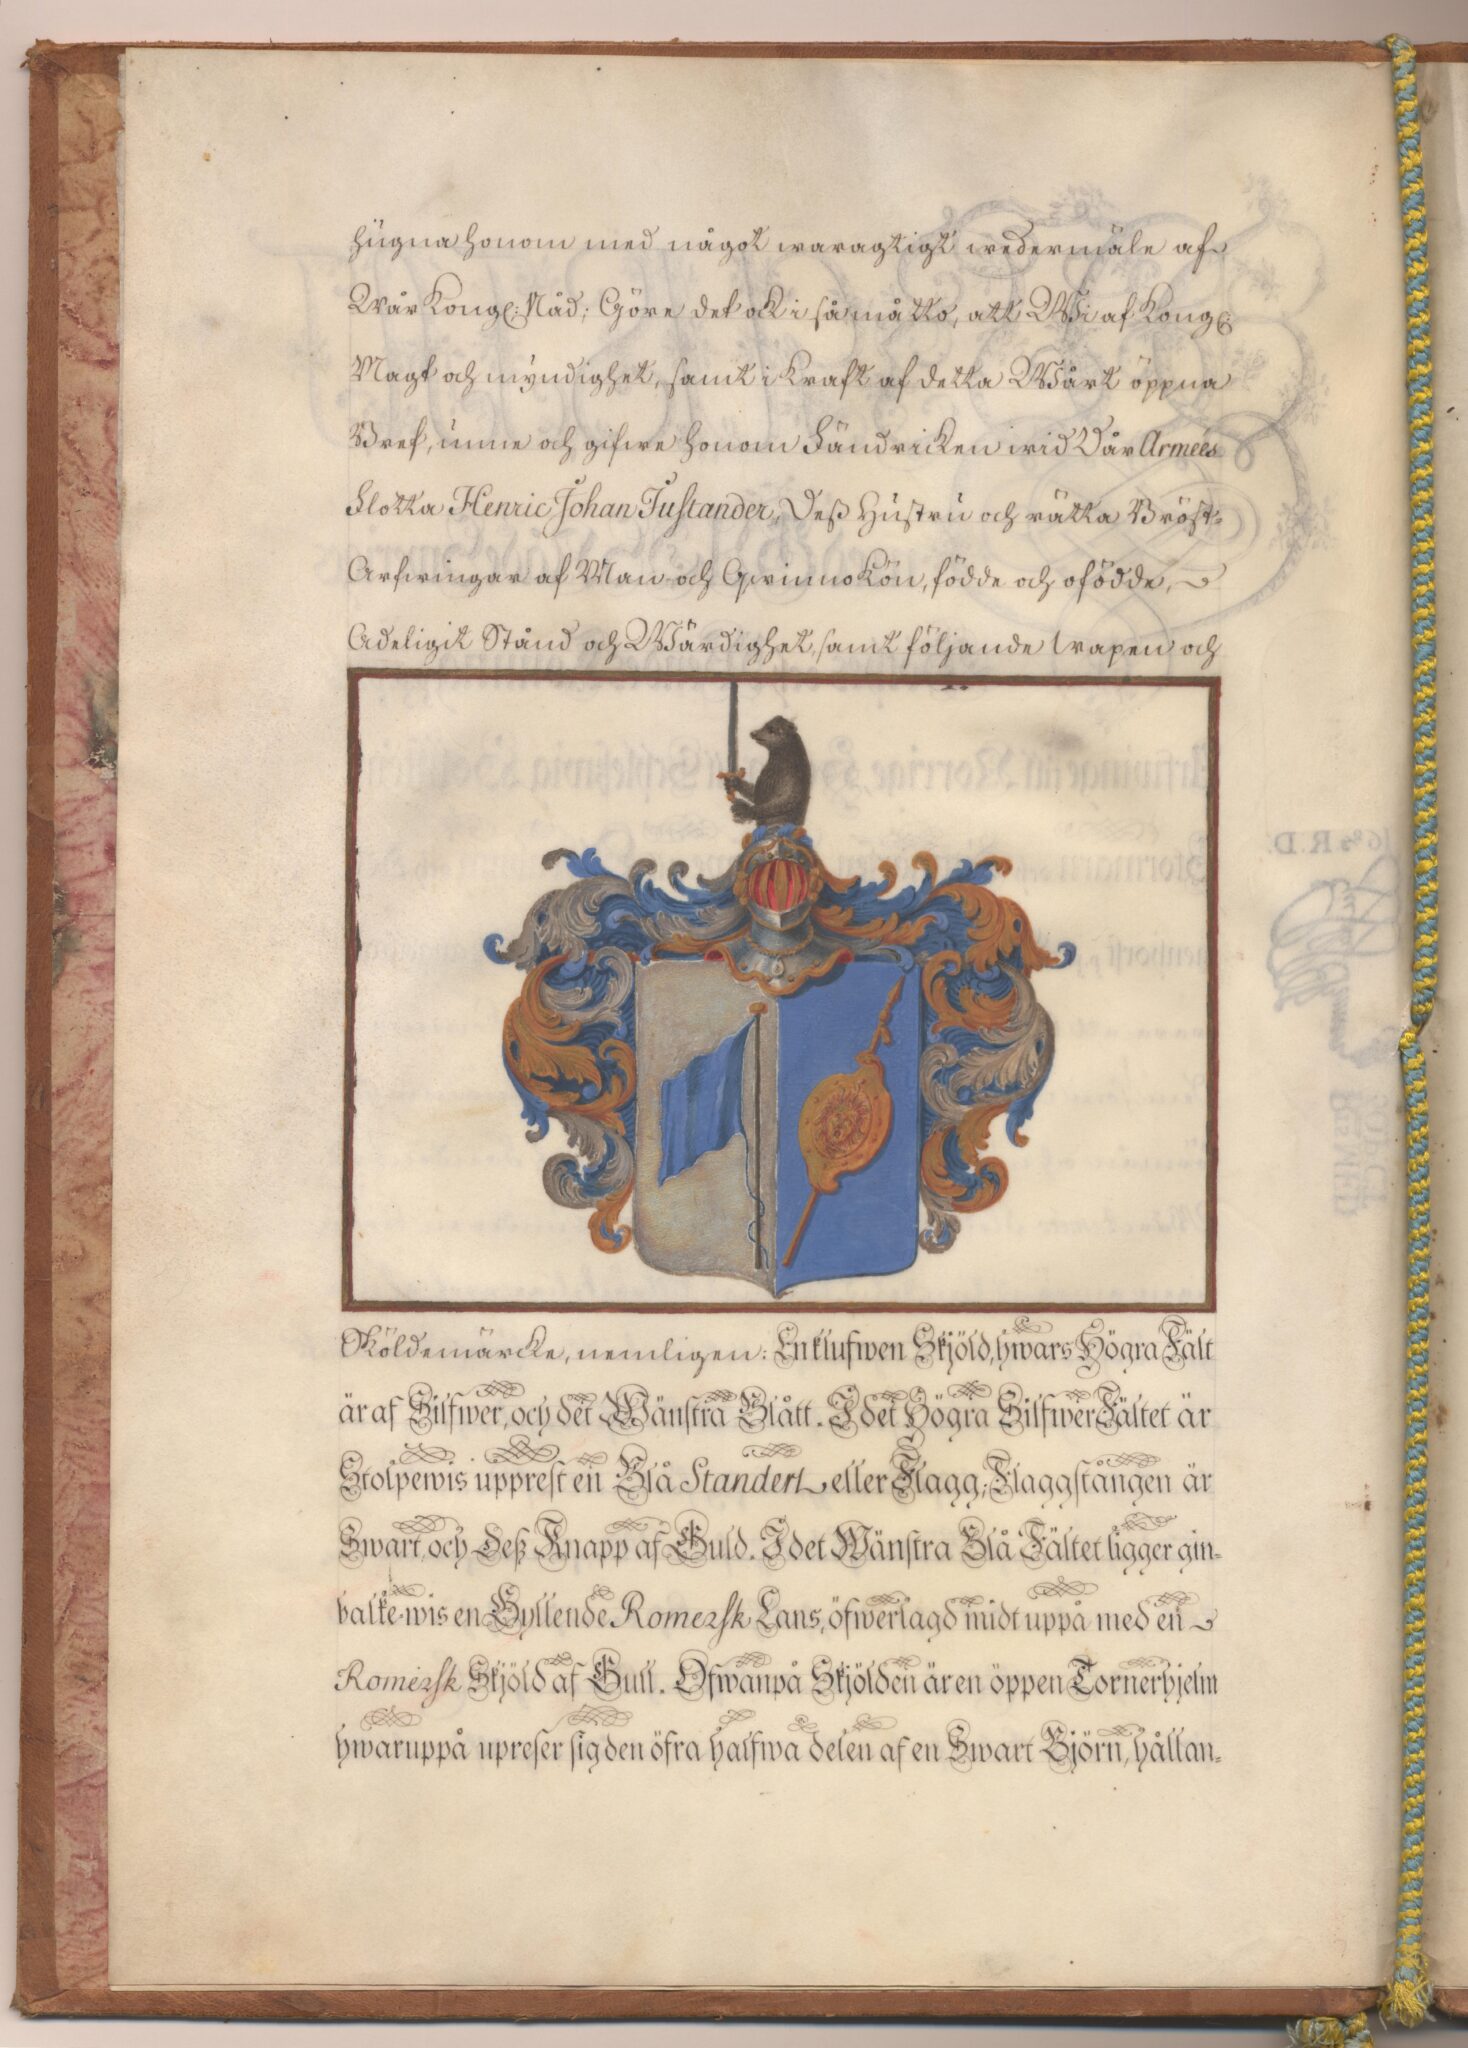 hügna honom med något waragtigt wedermäle af
Wår Kongl: Nåd; Göre det ock i så måtto, att Wi af Kongl:
Magt och myndighet, samt i kraft af detta Wårt öppna
Bref, unne och gifwe honom Fändricken wid Vår Armées
Flotta Henric Johan Tustander, Deß Hustru och rätta Bröst-
Arfwingar af Man- och Qwinno Kön, födde och ofödde,
Adeligit Stånd och Wärdighet, samt följande wapen och
Sköldemärcke, nemligen: En klufwen Skjöld, hwars Högra Fält
är af Silfwer, och det Wänstra Blått. I det Högra Silfwer Fältet är
Stolpewis upprest en Blå Standert eller Flagg; Flaggstången är
Swart, och deß Knapp af Guld. I det Wänstra Blå Fältet ligger gin-
balke-wis en Gyllende Romersk Lans, öfwerlagd midt uppå med en
Romersk Skjöld af Gull. Ofwanpå Skjölden är en öppen Tornerhjelm
hwaruppå upreser sig den öfra halfwa delen af en Swart Björn, hållan-